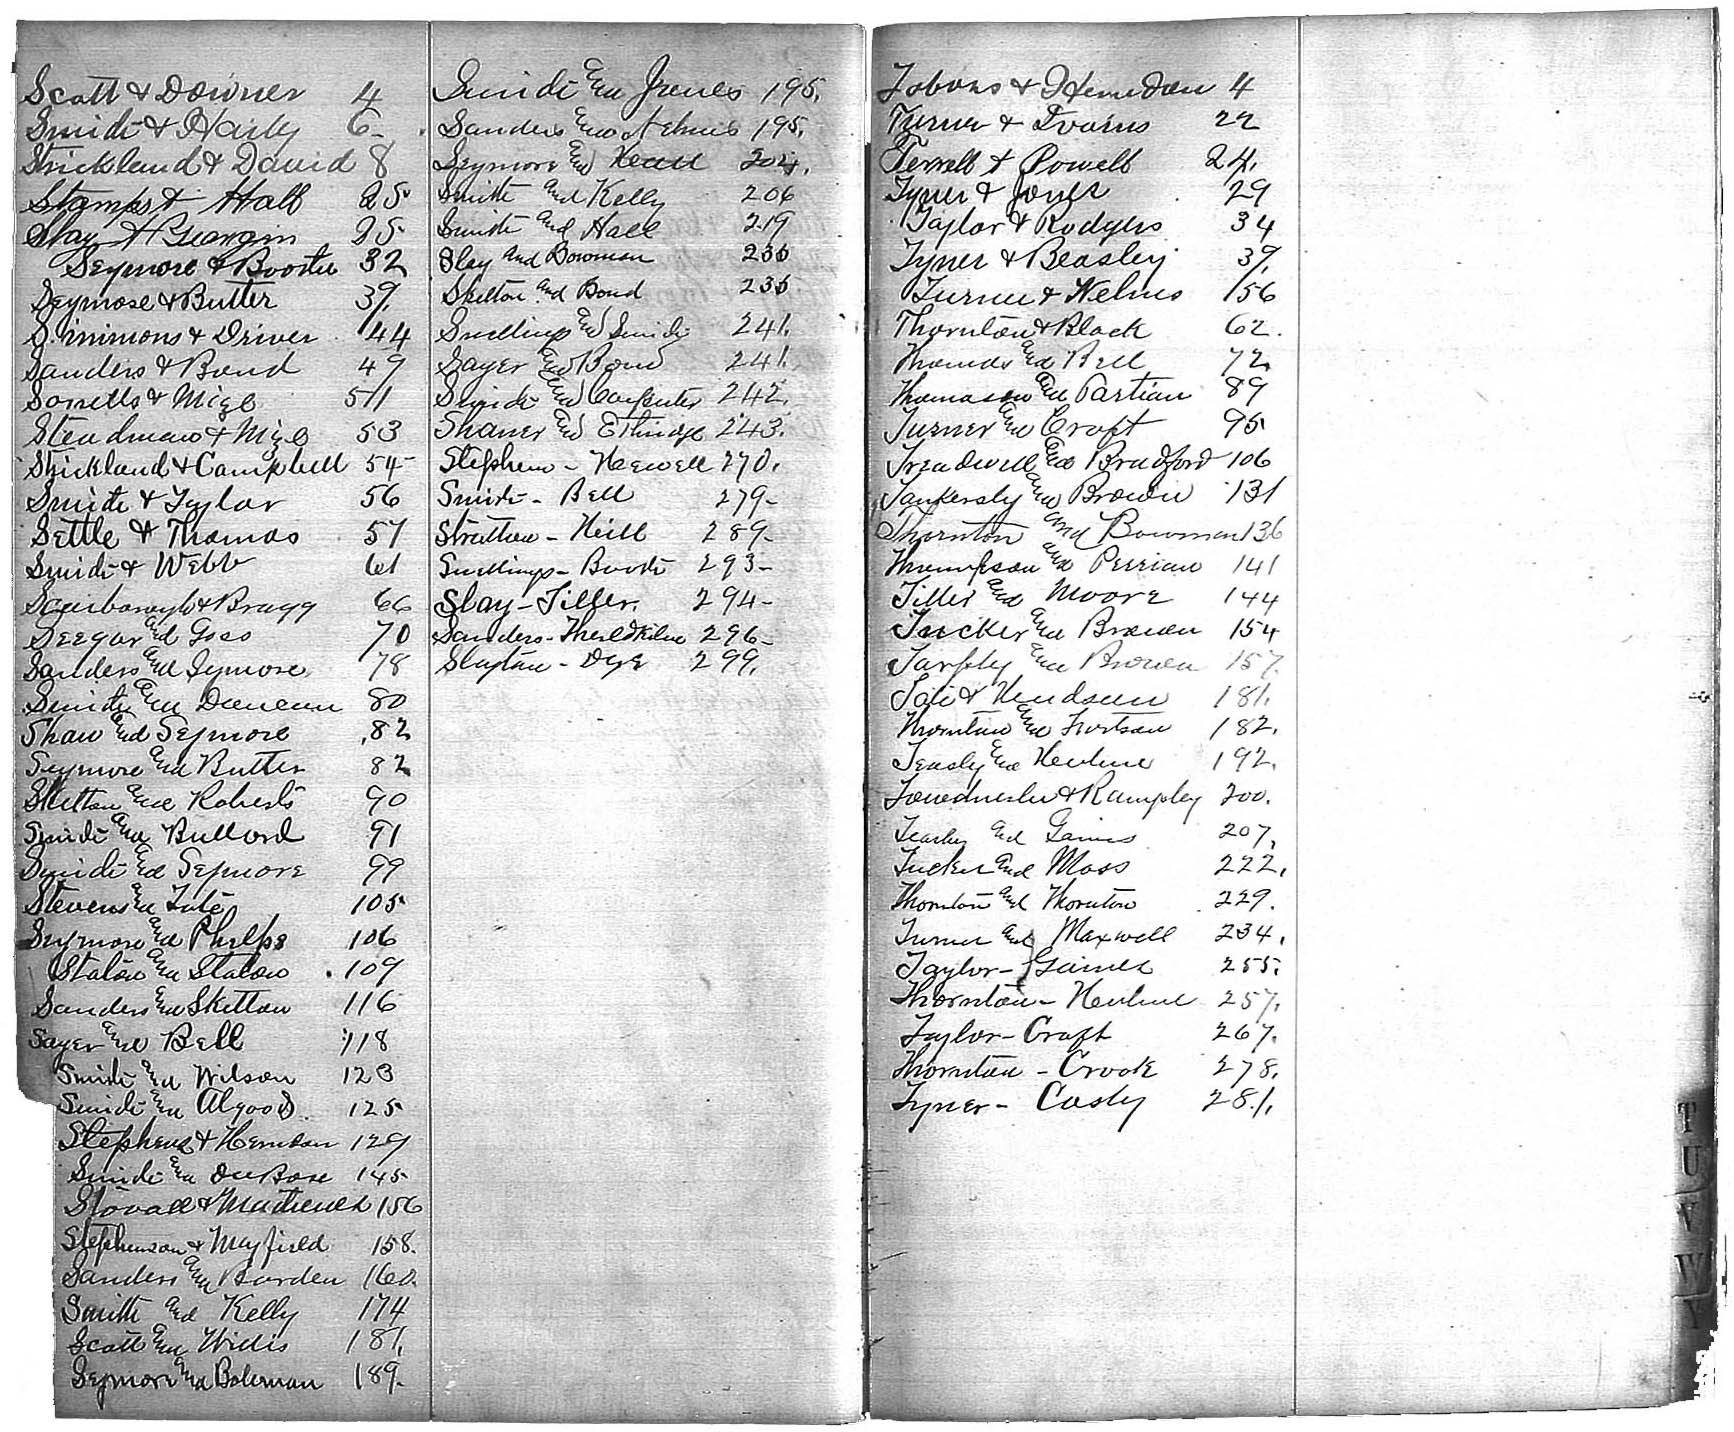 Scott & Downer 4
Smith & Haily 6
Strickland & David 8
Stamps & Hall 25
Slay & 25
Seymore & Booth 32
Seymore & Butler 39.
Simmons & Driver 44
Sanders & Bond 49
Sorrells & Mize 511
Steadman & Mize 53
Strickland & Campbell 54
Smith & Taylor 56
Settle & Thomas 57
Smith & Webb 61
Scarborough & Bragg 66
Seegar and Goss 70
Sanders and Seymore 78
Smith and Duncan 80
Shaw and Seymore 82
Seymore and Butler 82
Skelton and Roberts 90
Smith and Bullard 91
Smith and Seymore 99
Stevens and Tate 105
Seymore and Phelps 106
Staton and Staton 109
Sanders and Skelton 116
Sayer and Bell 118
Smith and Wilson 123
Smith and Algood 125
Stephens & Herndon 129
Smith and DuBose 145
Stovall & Mathews 156
Stephenson & Mayfield 158.
Sanders and Borden 160.
Smith and Kelly 174
Scott and Willis 181.
Seymore and Boleman 189.
Smith and 195.
Sanders and Nelms 195.
Seymore and Heard 204.
Smith and Kelly 206
Smith and Hall 219
Slay and Bowman 235
Skelton and Bond 235
Snellings and Smith 241.
Sayer and Bond 241.
Smith and Carpenter 242.
Shaner and Ethridge 243.
Stephens - Hewell 270.
Smith - Bell 279-
- Heill 289-
Snellings - Booth 293-
Slay - Tiller. 294-
Sanders - 296-
Slayton - Dye 299.
& Herndon 4
Turner & Evains 22
Terrell & Powell 24.
Tyner & Jones 29
Taylor & Rodgers 34
Tyner & Beasley 39.
Turner & Nelms 56
Thornton & Black 62.
Thomas and Bell 72
Thomason and Partian 89
Turner and Croft 95
Treadwell and Bradford 106
Tankersly and Brown 131
Thornton and Bowman 136
Thompson and Perrian 141
Tiller and Moore 144
Tucker and Brown 154
Tarply and Brown 157.
Tate & Hudson 181.
Thornton and Fortson 182.
Teasly and Herline 192.
& Rampley 200.
Teasley and Gaines 207.
Tucker and Moss 222.
Thornton and Thornton 229.
Turner and Maxwell 234.
Taylor - Gaines 255.
Thornton - Herline 257.
Taylor - Craft 267.
Thornton - Crook 278.
Tyner - Casly 281.
T
U
V
W
Y